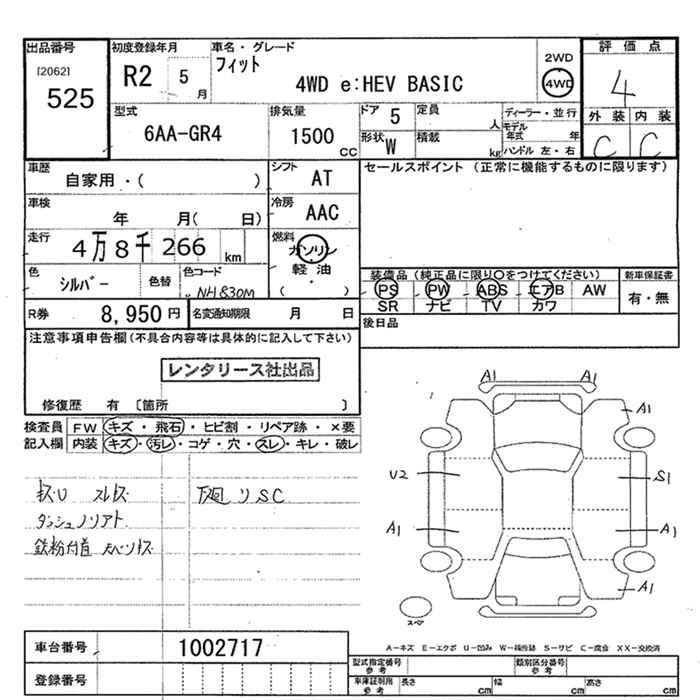 出品番号 初度登録年月 車名・グレード 2WD 評価点
[2062] R2 5月 フィット 4WD e:HEV BASIC 4WD 4
525
型式 排気量 ドア 5 定員 人 ディーラー・並行 外装 内装
6AA-GR4 1500 CC 形状 W 積載 kg モデル年式 年 C C
ハンドル 左・右
車歴 自家用・( ) シフト AT セールスポイント (正常に機能するものに限ります)
車検 年 月( 日) 冷房 AAC
走行 4万8千266 km 燃料 ガソリン
軽油
・
( )
色 シルバー 色替 色コード NH830M 装備品 (純正品に限り○をつけてください) 新車保証書
PS PW ABS エアB AW 有・無
R券 8,950円 名変通知期限 月 日 SR ナビ TV カワ
注意事項申告欄(不具合内容等は具体的に記入して下さい) 後日品
レンタリース社出品
修復歴 有 〔箇所 〕
検査員 FW キズ・飛石・ヒビ割・リペア跡・×要
記入欄 内装 キズ・汚レ・コゲ・穴・スレ・キレ・破レ
下廻りSC
鉄粉付着
A1 A1
A1
U2 S1
A1 A1
A1
スペア
A-キズ E-エクボ U-凹み W-補修跡 S-サビ C-腐食 XX-交換済
車台番号 1002717 型式指定番号 参考 類別区分番号 参考
登録番号 車庫証明用 参考 長さ cm 幅 cm 高さ cm